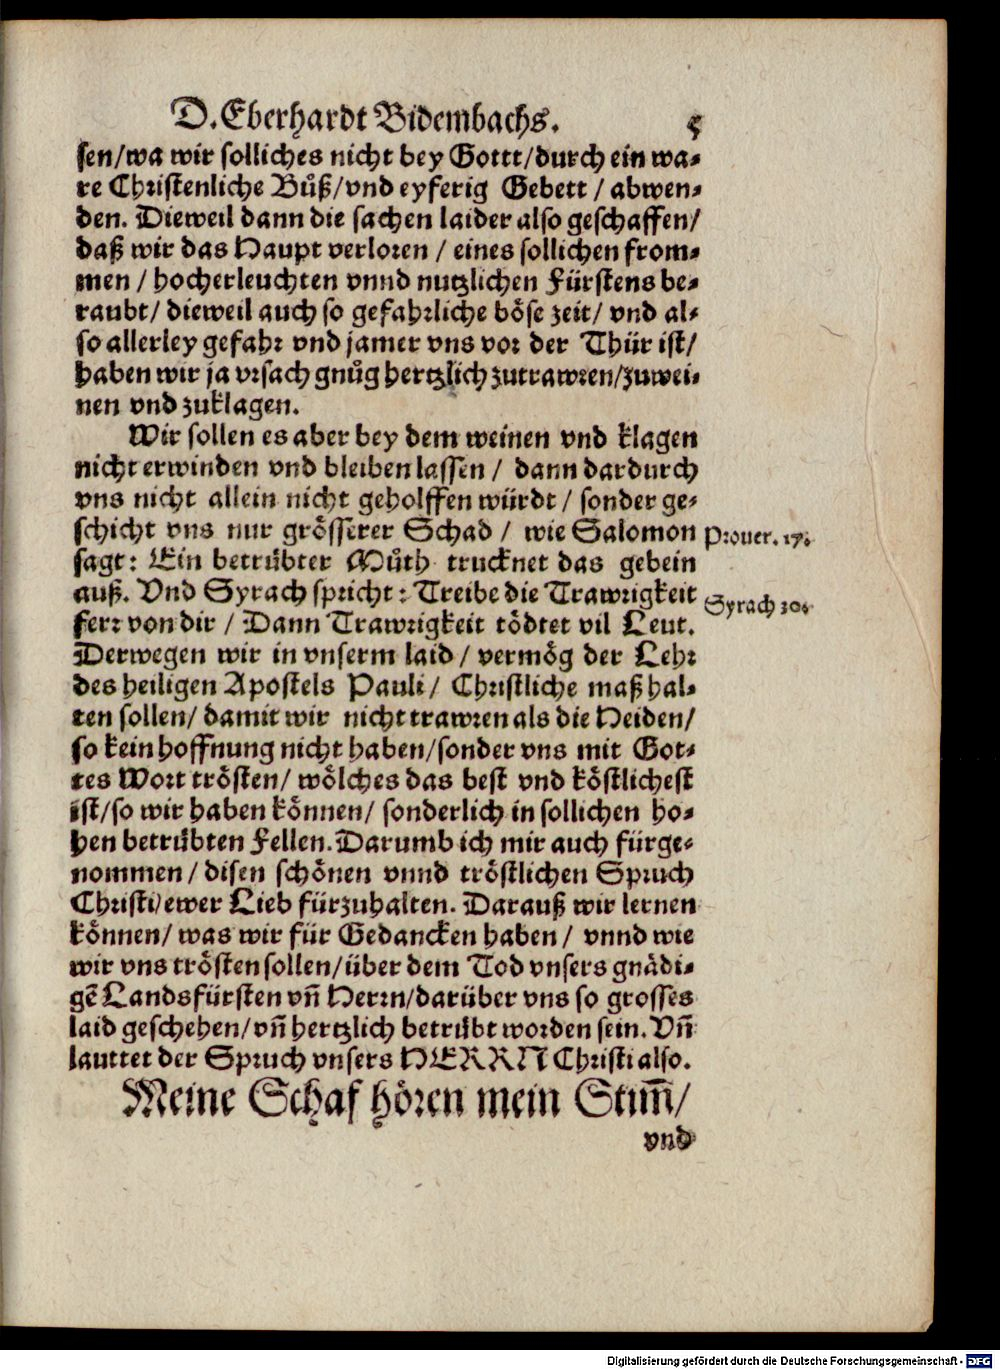 D. Eberhardt Bidembachs. 5
sen/wa wir solliches nicht bey Gottt/durch ein wa-
re Christenliche Bůß/vnd eyferig Gebett / abwen-
den. Dieweil dann die sachen laider also geschaffen/
daß wir das Haupt verloren / eines sollichen from-
men / hocherleuchten vnnd nutzlichen Fürstens be-
raubt/ dieweil auch so gefahrliche böse zeit/ vnd al-
so allerley gefahr vnd jamer vns vor der Thür ist/
haben wir ja vrsach gnůg hertzlich zutrawren/zuwei-
nen vnd zuklagen.
Wir sollen es aber bey dem weinen vnd klagen
nicht erwinden vnd bleiben lassen / dann dardurch
vns nicht allein nicht geholffen würdt / sonder ge-
schicht vns nur grösserer Schad / wie Salomon
Prouer. 17.
sagt: Ein betrübter Můth trucknet das gebein
auß. Vnd Syrach spricht: Treibe die Trawrigkeit
Syrach 30.
ferr von dir / Dann Trawrigkeit tödtet vil Leut.
Derwegen wir in vnserm laid / vermög der Lehr
des heiligen Apostels Pauli / Christliche maß hal-
ten sollen/ damit wir nicht trawren als die Heiden/
so kein hoffnung nicht haben/sonder vns mit Got-
tes Wort trösten/ wölches das best vnd köstlichest
ist/so wir haben können/ sonderlich in sollichen ho-
hen betrübten Fellen. Darumb ich mir auch fürge-
nommen / disen schönen vnnd tröstlichen Spruch
Christi/ewer Lieb fürzuhalten. Darauß wir lernen
können/ was wir für Gedancken haben / vnnd wie
wir vns trösten sollen/über dem Tod vnsers gnädi-
gẽ Landsfürsten vñ Herrn/darüber vns so grosses
laid geschehen/vñ hertzlich betrübt worden sein. Vñ
lauttet der Spruch vnsers HERRN Christi also.
Meine Schaf hören mein Stim̃/
vnd
Digitalisierung gefördert durch die Deutsche Forschungsgemeinschaft - DFG